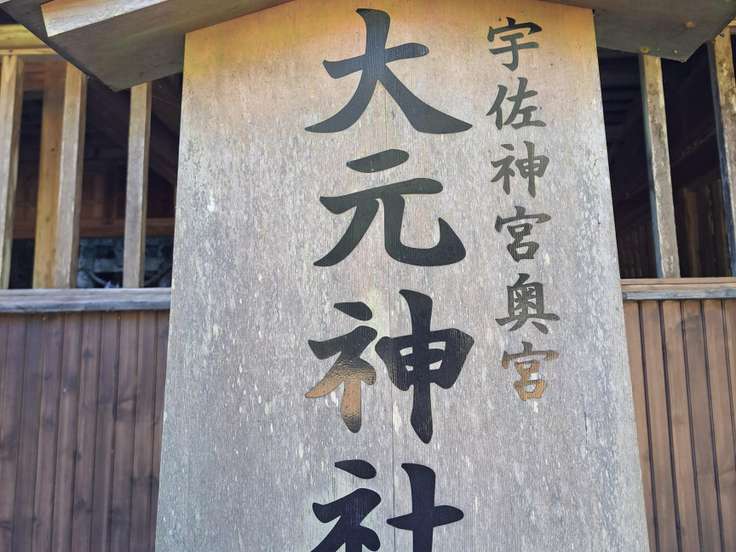 宇佐神宮奥宮
大元神社